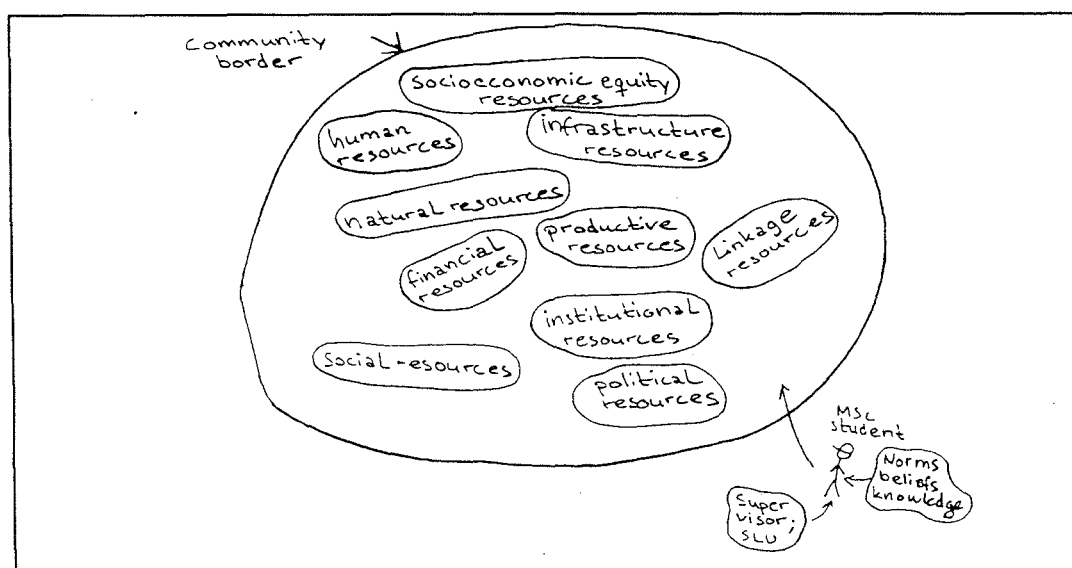 Community
border
socioeconomic equity
resources
human
resources
infrastructure
resources
natural resources
productive
resources
Linkage
resources
financial
resources
institutional
resources
social -esources
political
resources
MSc
student
Norms
beliefs
knowledge
Super
visor;
SLU